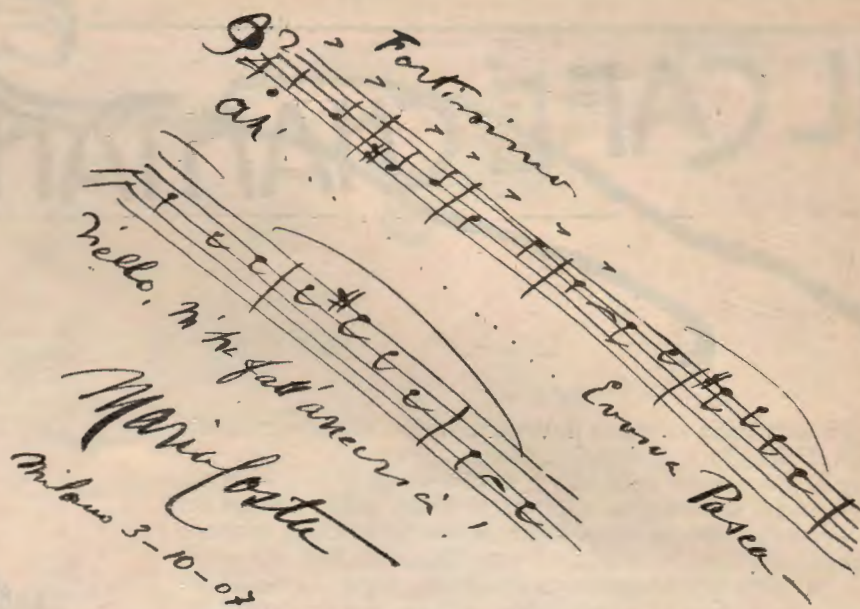 Fortissimo
ah!
Evviva Pasca—
riello, m'ha fatt'
Mario Costa
Milano 3-10-07